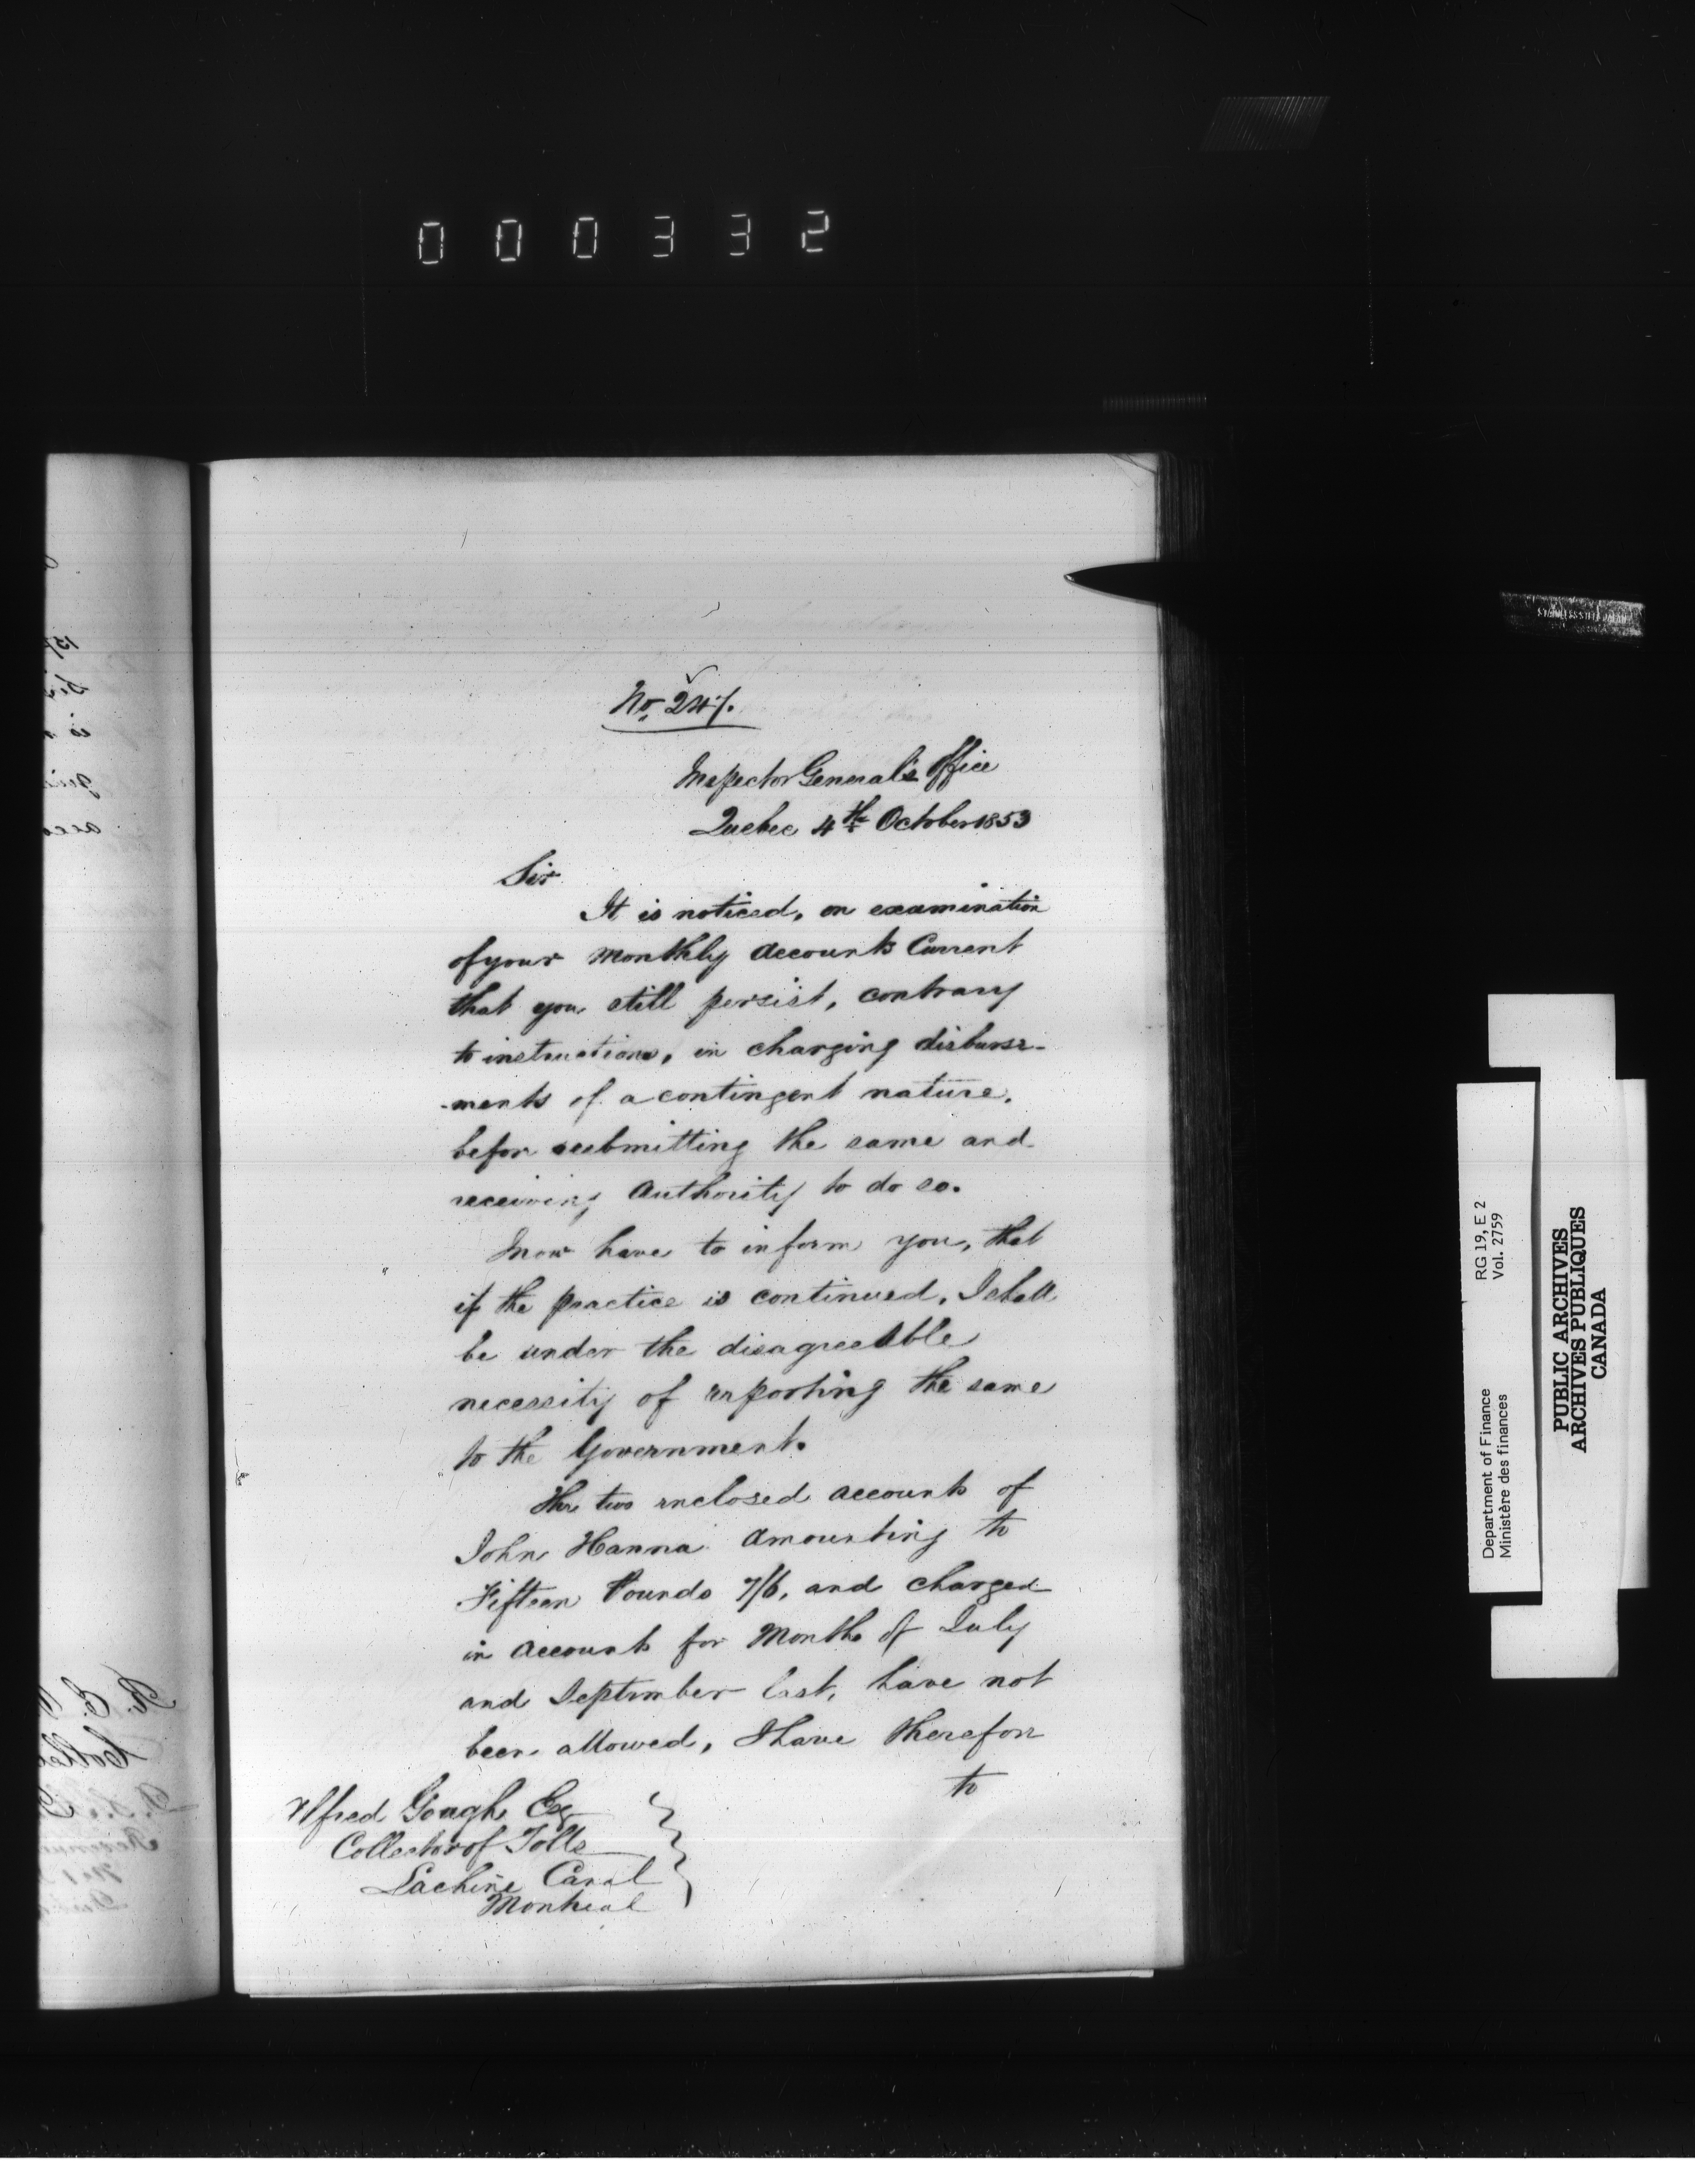 000332
No. 247.
Inspector General's Office
Quebec 4th October 1853
Sir
It is noticed, on examination
of your Monthly Accounts Current
that you still persist, contrary
to instructions, in charging disburse-
-ments of a contingent nature,
befor submitting the same and
receiving Authority to do so.
I now have to inform you, that
if the practice is continued, I shall
be under the disagreeable
necessity of reporting the same
to the Government.
The two enclosed accounts of
John Hanna amounting to
Fifteen Pounds 7/6, and charged
in Accounts for Months of July
and September last, have not
been allowed, I have therefore
to
Alfred Gough Esq
Collector of Tolls
Lachine Canal
Montreal
STAINLESS STEEL JAPAN
Department of Finance
Ministère des finances
RG 19, E 2
Vol. 2759
PUBLIC ARCHIVES
ARCHIVES PUBLIQUES
CANADA